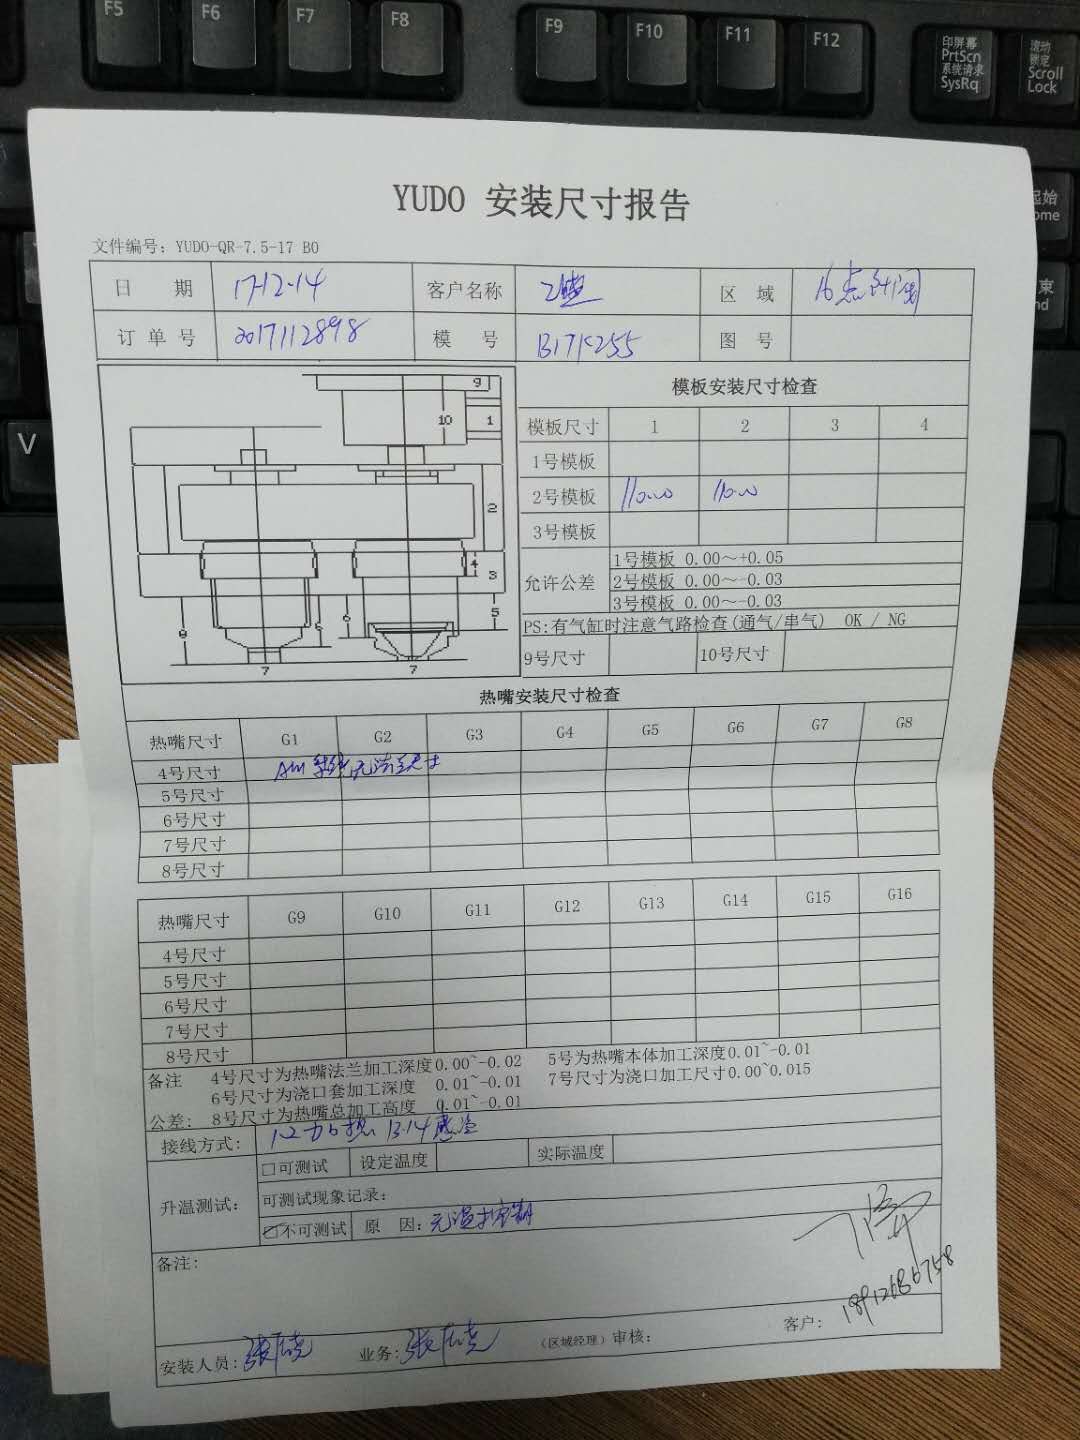 F5 F6 F7 F8 F9 F10 F11 F12
印屏幕 PrtScn 系统请求 SysRq
滚动锁定 Scroll Lock
V
YUDO 安装尺寸报告
文件编号: YUDO-QR-7.5-17 B0
日 期 17-12-14 客户名称 区 域 16点针阀
订 单 号 2017112898 模 号 B17K255 图 号
9
10 1
2
4
3
5
8 6
7 7
模板安装尺寸检查
模板尺寸 1 2 3 4
1号模板
2号模板 110.00 110.00
3号模板
允许公差 1号模板 0.00～+0.05
2号模板 0.00～-0.03
3号模板 0.00～-0.03
PS:有气缸时注意气路检查(通气/串气) OK / NG
9号尺寸 10号尺寸
热嘴安装尺寸检查
热嘴尺寸 G1 G2 G3 G4 G5 G6 G7 G8
4号尺寸
5号尺寸
6号尺寸
7号尺寸
8号尺寸
热嘴尺寸 G9 G10 G11 G12 G13 G14 G15 G16
4号尺寸
5号尺寸
6号尺寸
7号尺寸
8号尺寸
备注 4号尺寸为热嘴法兰加工深度0.00~-0.02 5号为热嘴本体加工深度0.01~-0.01
6号尺寸为浇口套加工深度 0.01~-0.01 7号尺寸为浇口加工尺寸0.00~0.015
公差: 8号尺寸为热嘴总加工高度 0.01~-0.01
接线方式: 1-2加热 13-14感温
升温测试: □可测试 设定温度 实际温度
可测试现象记录:
☑不可测试 原 因: 无温控制
备注:
18912686758
安装人员: 业务: (区域经理)审核: 客户: